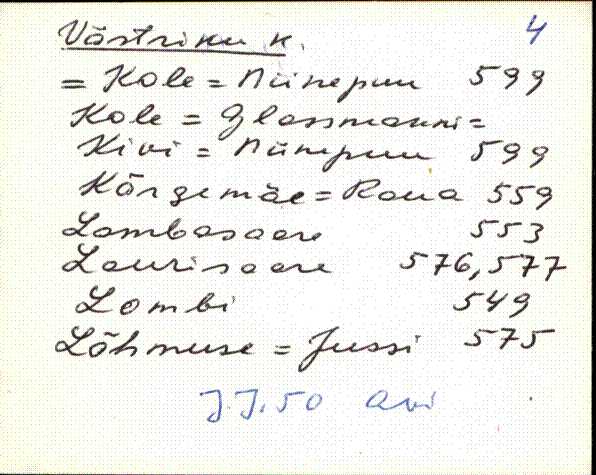 Västriku k. 4
= Kole = Niinepuu 599
Kole = Glassmanni =
Kivi = Niinepuu 599
Kõrgemäe = Raua 559
Lombasaare 553
Laurisaare 576, 577
Lombi 549
Lõhmuse = Jussi 575
J.J. 50